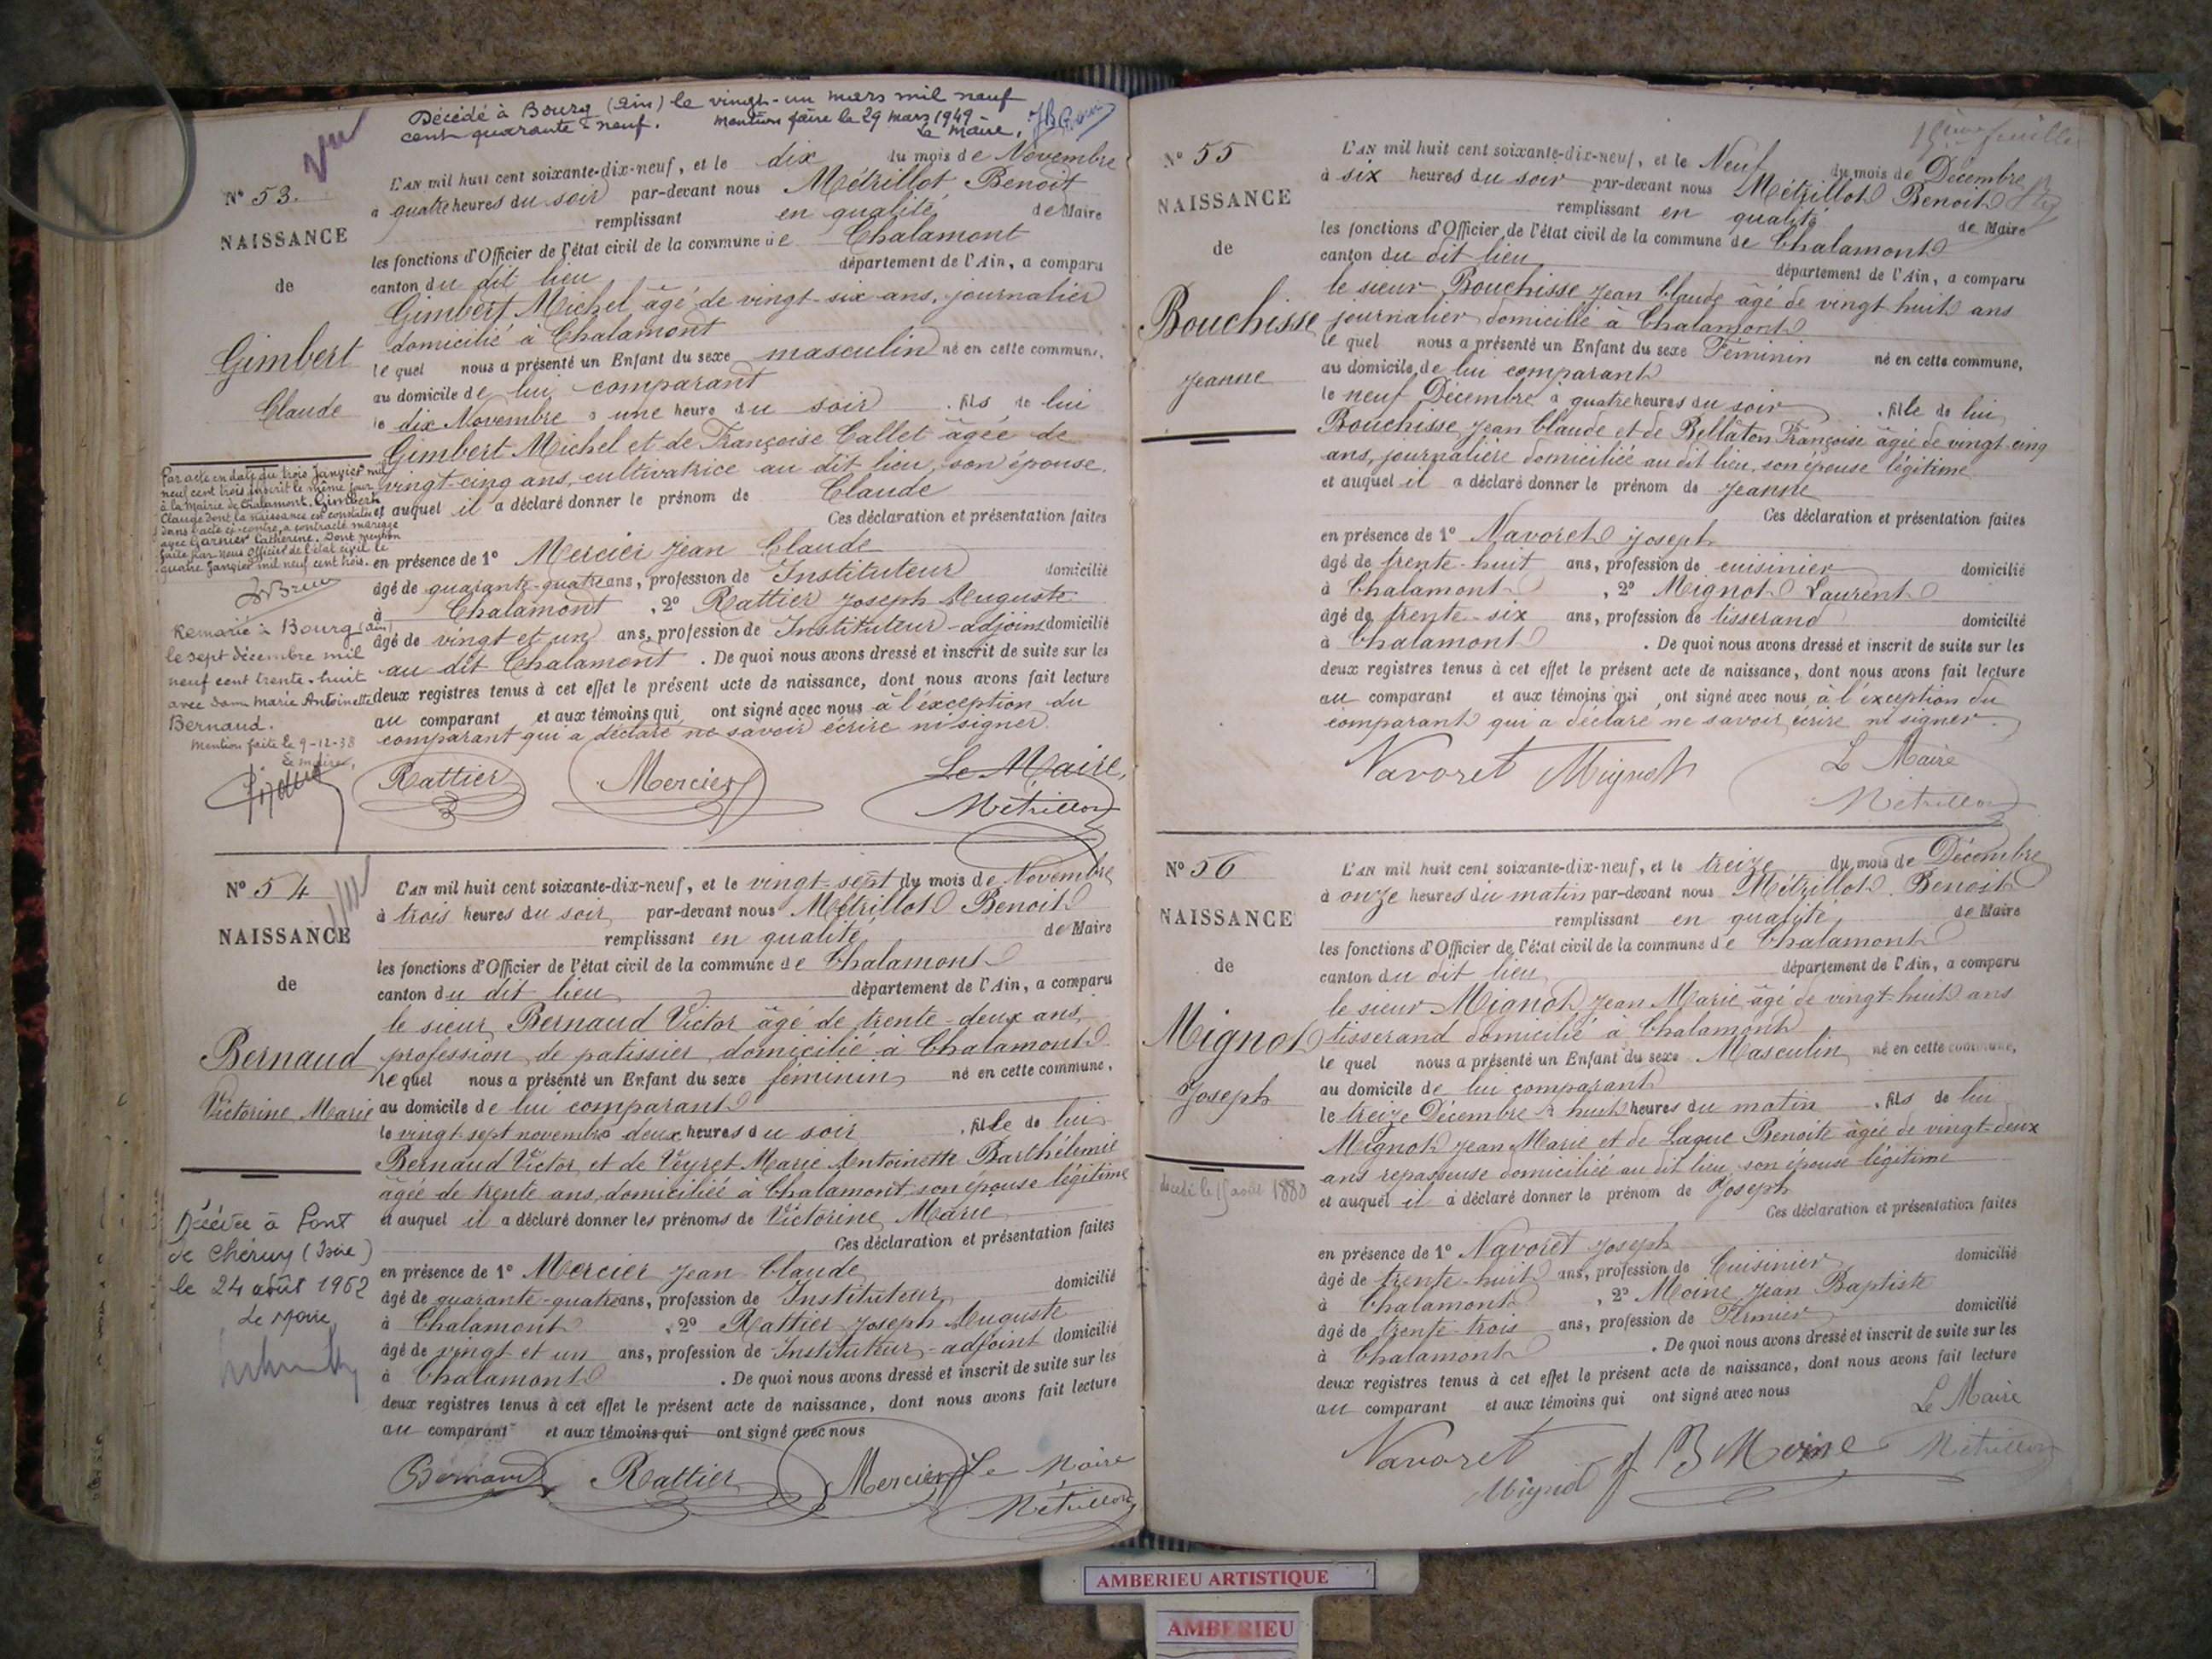 Vu
Décédé à Bourg (Ain) le vingt-un mars mil neuf
cent quarante-neuf. Mention faire le 29 mars 1949
Le Maire,
N° 53.
NAISSANCE
de
Gimbert
Claude
L'AN mil huit cent soixante-dix-neuf, et le dix du mois de Novembre
à quatre heures du soir par-devant nous Métrillot Benoit
remplissant en qualité de Maire
les fonctions d'Officier de l'état civil de la commune de Chalamont
canton du dit lieu département de l'Ain, a comparu
Gimbert Michel âgé de vingt-six ans, journalier
domicilié à Chalamont
lequel nous a présenté un Enfant du sexe masculin né en cette commune,
au domicile de lui comparant
le dix Novembre à une heure du soir, fils de lui
Gimbert Michel et de Françoise Callet âgée de
vingt-cinq ans, cultivatrice au dit lieu, son épouse.
et auquel il a déclaré donner le prénom de Claude
Ces déclaration et présentation faites
en présence de 1° Mercier Jean Claude
âgé de quarante-quatre ans, profession de Instituteur domicilié
à Chalamont, 2° Rattier Joseph Auguste
âgé de vingt et un ans, profession de Instituteur-adjoint domicilié
au dit Chalamont. De quoi nous avons dressé et inscrit de suite sur les
deux registres tenus à cet effet le présent acte de naissance, dont nous avons fait lecture
au comparant et aux témoins qui ont signé avec nous à l'exception du
comparant qui a déclaré ne savoir écrire ni signer.
Par acte en date du trois Janvier mil
neuf cent trois inscrit le même jour
à la Mairie de Chalamont, Gimbert
Claude dont la naissance est constatée
dans l'acte ci-contre, a contracté mariage
avec Garnier Catherine. Dont mention
faite par nous Officier de l'état civil le
quatre Janvier mil neuf cent trois.
Remarié à Bourg (Ain)
le sept décembre mil
neuf cent trente-huit
avec dame Marie Antoinette
Bernaud.
Mention faite le 9-12-38
Le maire,
Rattier Mercier Le Maire,
Métrillot
N° 54
NAISSANCE
de
Bernaud
Victorine Marie
L'AN mil huit cent soixante-dix-neuf, et le vingt-sept du mois de Novembre
à trois heures du soir par-devant nous Métrillot Benoit
remplissant en qualité de Maire
les fonctions d'Officier de l'état civil de la commune de Chalamont
canton du dit lieu département de l'Ain, a comparu
le sieur Bernaud Victor âgé de trente-deux ans,
profession de patissier domicilié à Chalamont
lequel nous a présenté un Enfant du sexe féminin né en cette commune,
au domicile de lui comparant
le vingt-sept novembre deux heures du soir, fille de lui
Bernaud Victor et de Veyret Marie Antoinette Barthélemie
âgée de trente ans, domiciliée à Chalamont son épouse légitime
et auquel il a déclaré donner les prénoms de Victorine Marie
Ces déclaration et présentation faites
en présence de 1° Mercier Jean Claude
âgé de quarante-quatre ans, profession de Instituteur domicilié
à Chalamont, 2° Rattier Joseph Auguste
âgé de vingt et un ans, profession de Instituteur-adjoint domicilié
à Chalamont. De quoi nous avons dressé et inscrit de suite sur les
deux registres tenus à cet effet le présent acte de naissance, dont nous avons fait lecture
au comparant et aux témoins qui ont signé avec nous
Décédée à Pont
de Chéruy (Isère)
le 24 août 1962
Le Maire
Bernaud Rattier Mercier Le Maire
Métrillot
15ème feuille
N° 55
NAISSANCE
de
Bouchisse
Jeanne
L'AN mil huit cent soixante-dix-neuf, et le Neuf du mois de Décembre
à six heures du soir par-devant nous Métrillot Benoit
remplissant en qualité de Maire
les fonctions d'Officier de l'état civil de la commune de Chalamont
canton du dit lieu département de l'Ain, a comparu
le sieur Bouchisse Jean Claude âgé de vingt huit ans
journalier domicilié à Chalamont
lequel nous a présenté un Enfant du sexe Féminin né en cette commune,
au domicile de lui comparant
le neuf Décembre à quatre heures du soir, fille de lui
Bouchisse Jean Claude et de Bellaton Françoise âgée de vingt-cinq
ans, journalière domiciliée au dit lieu, son épouse légitime
et auquel il a déclaré donner le prénom de Jeanne
Ces déclaration et présentation faites
en présence de 1° Navoret Joseph
âgé de trente-huit ans, profession de cuisinier domicilié
à Chalamont, 2° Mignot Laurent
âgé de trente-six ans, profession de tisserand domicilié
à Chalamont. De quoi nous avons dressé et inscrit de suite sur les
deux registres tenus à cet effet le présent acte de naissance, dont nous avons fait lecture
au comparant et aux témoins qui ont signé avec nous, à l'exception du
comparant qui a déclaré ne savoir écrire ni signer.
Navoret Mignot Le Maire
Métrillot
N° 56
NAISSANCE
de
Mignot
Joseph
L'AN mil huit cent soixante-dix-neuf, et le treize du mois de Décembre
à onze heures du matin par-devant nous Métrillot Benoit
remplissant en qualité de Maire
les fonctions d'Officier de l'état civil de la commune de Chalamont
canton du dit lieu département de l'Ain, a comparu
le sieur Mignot Jean Marie âgé de vingt-huit ans
tisserand domicilié à Chalamont
lequel nous a présenté un Enfant du sexe Masculin né en cette commune,
au domicile de lui comparant
le treize Décembre à huit heures du matin, fils de lui
Mignot Jean Marie et de Lague Benoite âgée de vingt-deux
ans repasseuse domiciliée au dit lieu, son épouse légitime
et auquel il a déclaré donner le prénom de Joseph
Ces déclaration et présentation faites
décédé le 15 août 1880
en présence de 1° Navoret Joseph domicilié
âgé de trente-huit ans, profession de Cuisinier
à Chalamont, 2° Moine Jean Baptiste
âgé de trente-trois ans, profession de Fermier domicilié
à Chalamont. De quoi nous avons dressé et inscrit de suite sur les
deux registres tenus à cet effet le présent acte de naissance, dont nous avons fait lecture
au comparant et aux témoins qui ont signé avec nous
Le Maire
Navoret J B Moine Métrillot
Mignot
AMBERIEU ARTISTIQUE
AMBERIEU